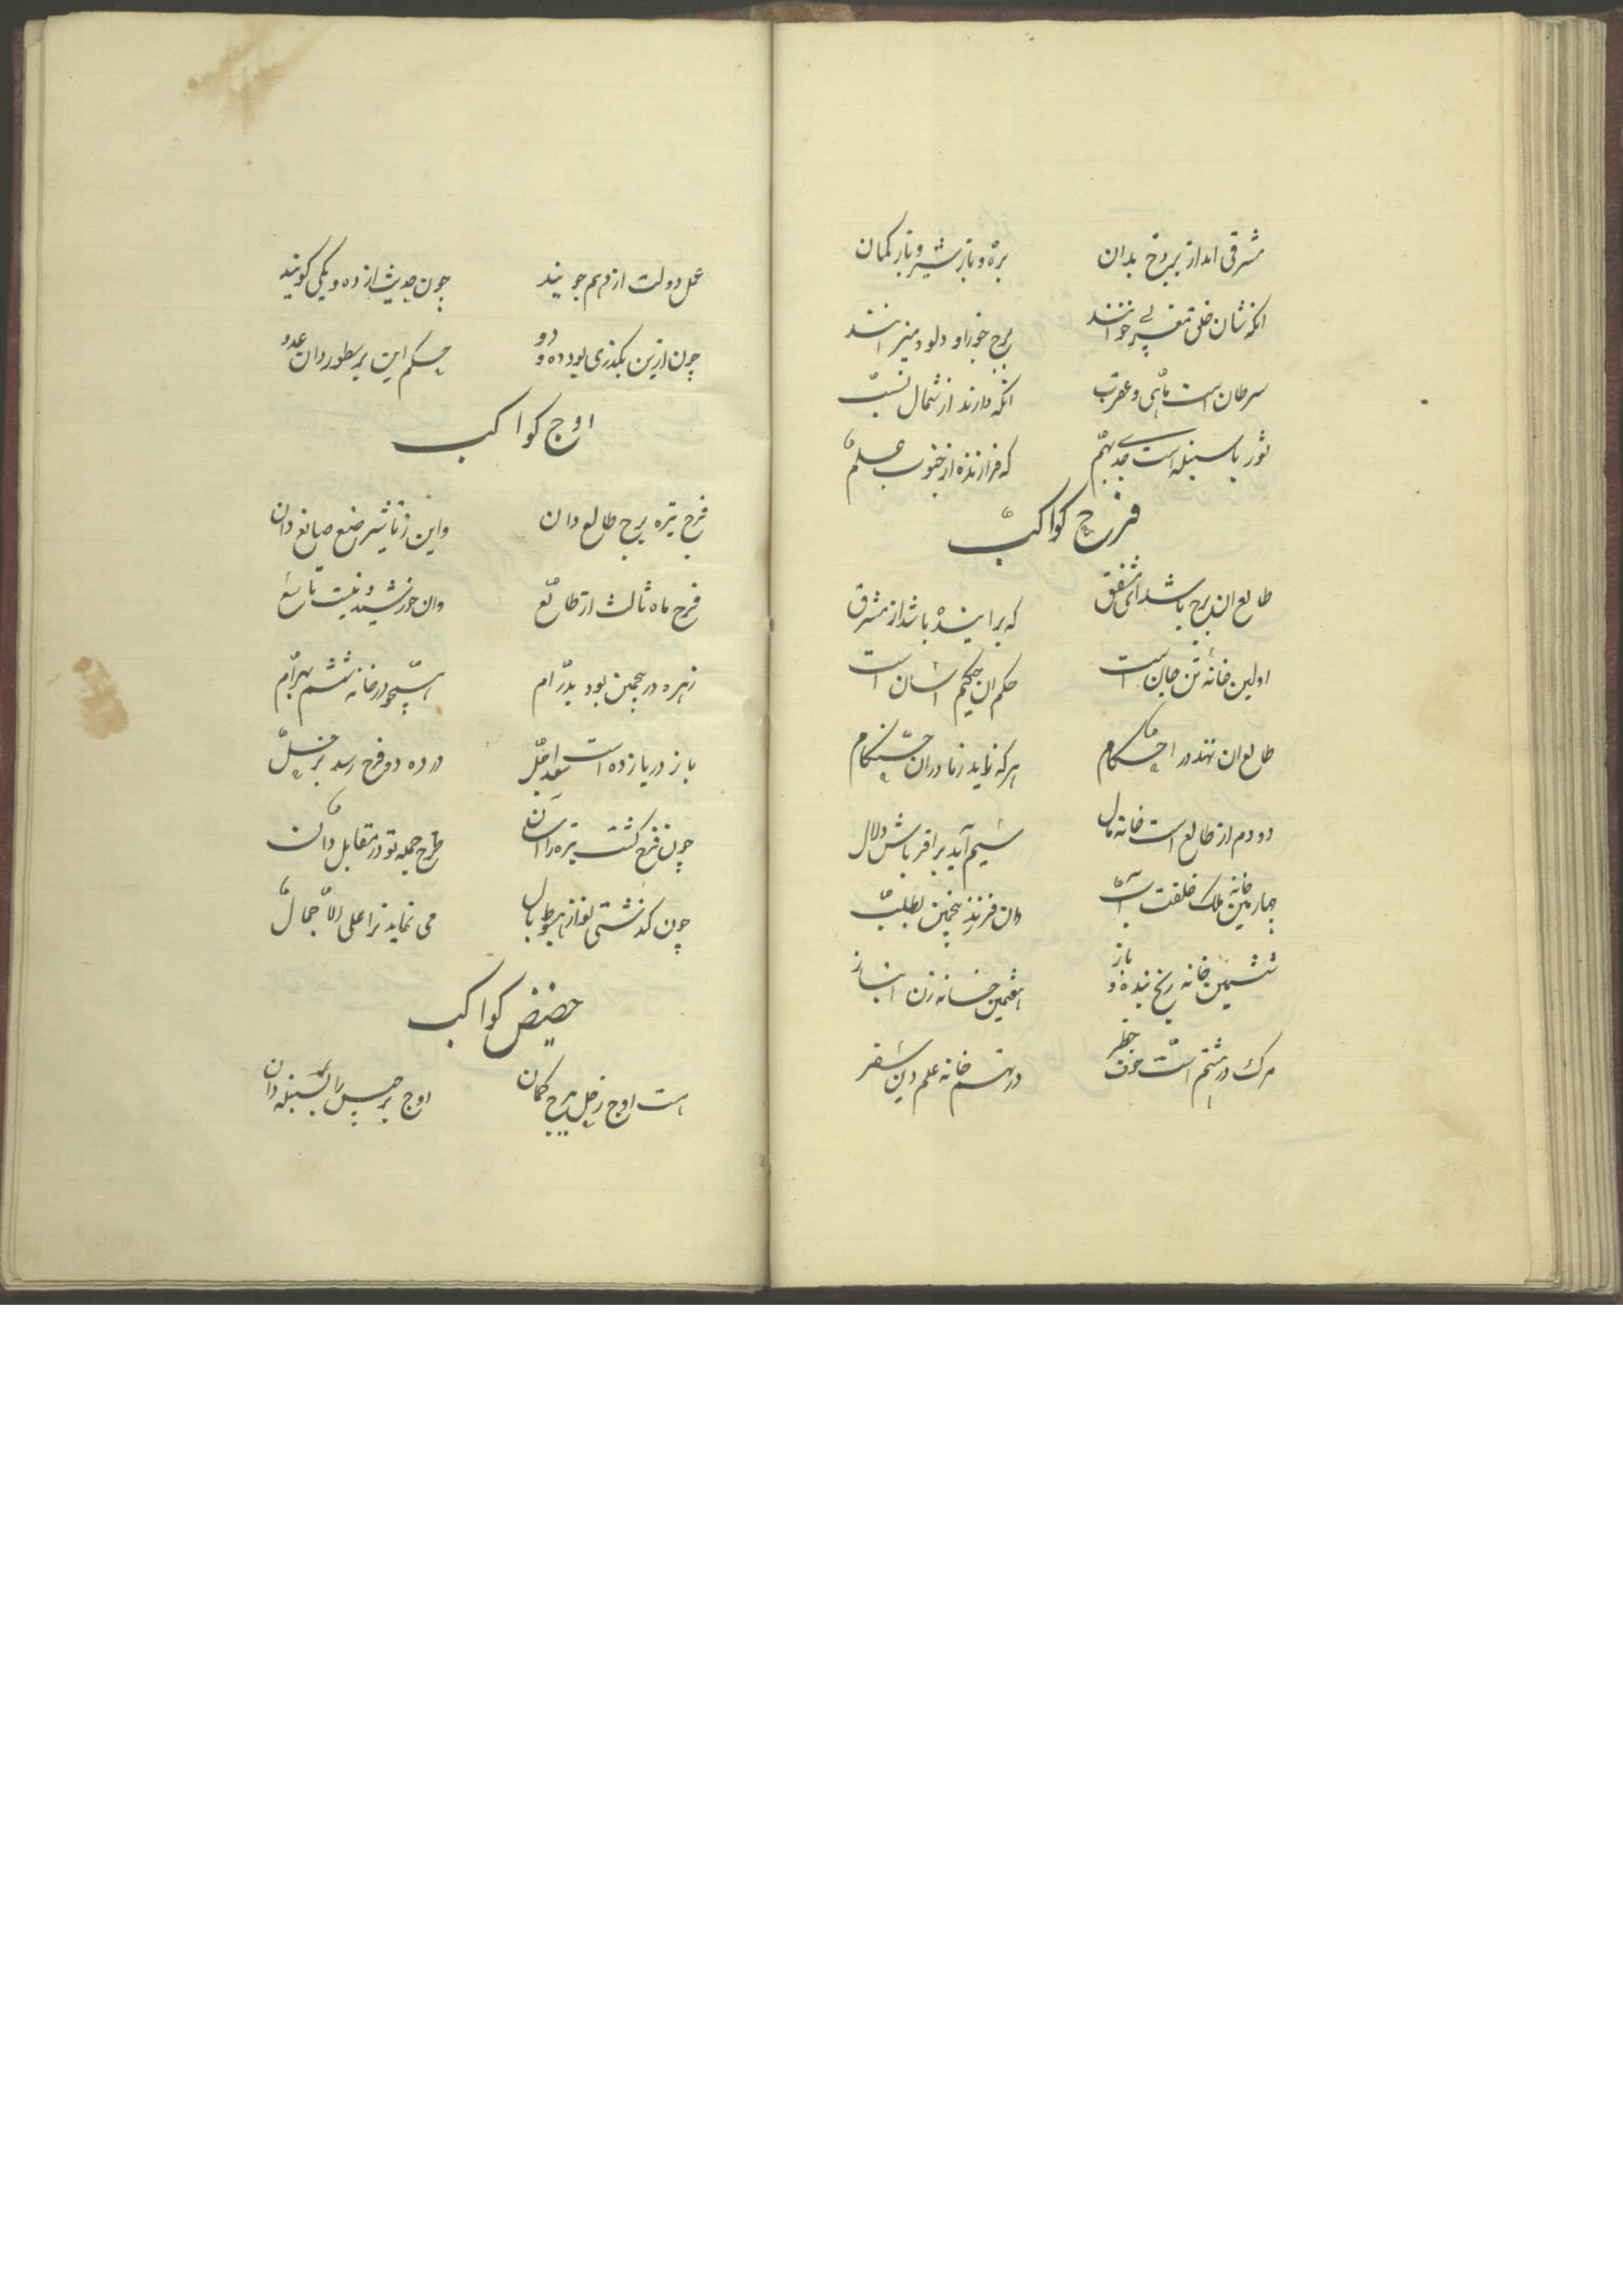 مشرقی امد از بروج بدان بره و باز شیر و باز کمان
انکه شان خلق مغربی خوانند برج جوزا و دلو و میزانند
سرطان است ماهی و عقرب انکه دارند از شمال نسب
ثور با سنبله است جدی بهم که فرازنده از جنوب علم
فرح کواکب
طالع ان برج باشد ای مشفق که براینده باشد از مشرق
اولین خانه تن جان است حکم ان حکیم اسان است
طالع ان نهند در احکام هر که زاید ز مادران هنکام
دودم از طالع است خانه مال سیم آید برا قرباش دلال
چهارمین خانه ملک خلقت آب وان فرزند پنجمین بطلب
ششمین خانه رنج بنده و باز هفتمین خانه زن انباز
مرک در هشتم است خوف خطر در نهم خانه علم دین سفر
عمل دولت از دهم جویند چون حدیث از ده و یکی کویند
چون ازین بکذری بود ده و دو حکم این بر سطور دان عدو
اوج کواکب
فرح تیره برج طالع دان واین ز تاثیر صنع صانع دان
فرح ماه ثالث از طالع وان خورشید نیست تاسع
زهره در پنجمین بود پدرام همچو در خانه ششم بهرام
باز در یازده است سعد اجل در ده دو فرح رسد بزحل
چون فرح کشت تیره را اسان طرح جمله تو در مقابل دان
چون کذشتی تو از هبوط وبال می نماید ترا علی الاجمال
حضیض کواکب
هست اوج زحل ببرج کمان اوج برجیس را بسنبله دان